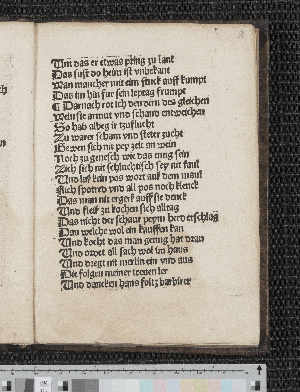 Um das er etwas pfenig zu lant
Das sust do heim ist vnbekant
Wan mancher mit eim stuck auff kumpt
Das im hin fur sein leptag frumpt
¶ Darnach rot ich den dirn des gleichen
Wein sie armut vnd schand entweichen
So hab albeg ir tzuflucht
Zu warer scham vnd steter zucht
Dewen sich nit pey zeit an wein
Noch zu genesch wie das mug sein
Zich sich nit schluchtisch sey nit faul
Und loß kein pos wort auß dem maul
Nich spotred vnd all pos noch klenck
Das man nit ergerß auff sie denck
Und fleiß zu kochen sich alltag
Das nicht der schaur peym herd erschlag
Dan welche wol ein kauffen kan
Und kocht das man genug hat dran
Und ordet all sach wol im haus
Und dregt nit merlin ein vnd aus
Die folgen meiner trewen ler
Und dancken hans foltz barbirer